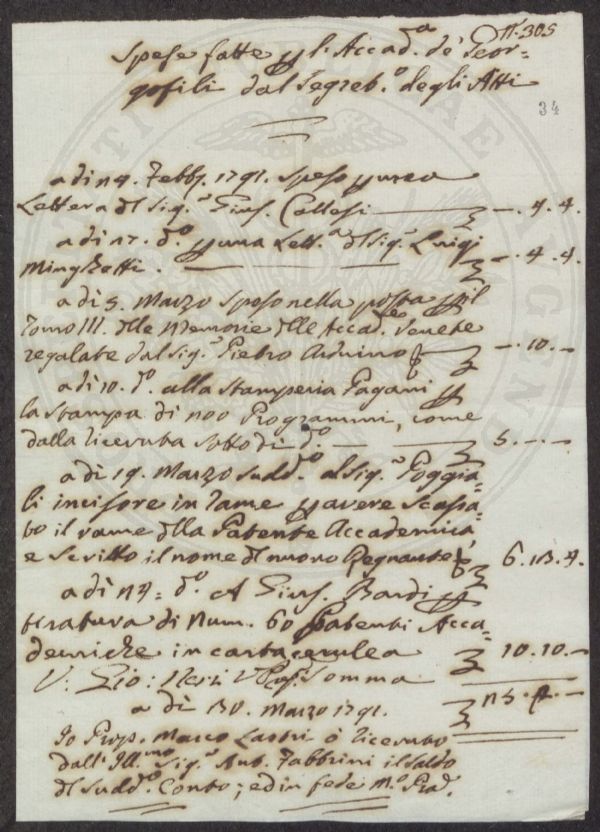 N. 305
Spese fatte p l'Accad.a de' Geor-
gofili dal Segret.o degli Atti
34
a dì 14. Febb. 1791. speso p una
Lettera del Sig.r Gius. Collesi — — . 4. 4.
a dì 17. d.o p una Lett.a del Sig.r Luigi
Minghetti . — — — — . 4. 4.
a dì 5. Marzo speso nella posta p il
Tomo III. delle Memorie delle Accad. Venete
regalate dal Sig.r Pietro Arduino — . 10. —
a dì 10. d.o alla Stamperia Pagani p
la stampa di 100 Programmi, come
dalla ricevuta sotto dì d.o — — 5. — . —
a dì 19. Marzo sudd.o al Sig.r Poggia-
li incisore in rame p avere scassa-
to il rame della Patente Accademica,
e scritto il nome del nuovo Regnante 6. 13. 4.
a dì 24. d.o A Gius. Bardi p
tiratura di Num. 60 Patenti Acca-
demiche in carta cerulea 10. 10. —
V. Gio: Neri V. Pres. Somma
a dì 30. Marzo 1791.
Io Prop. Marco Lastri ò ricevuto
dall' Ill.mo Sig.r Aut. Fabbrini il saldo
del sudd.o Conto; ed in fede M.o Pra.